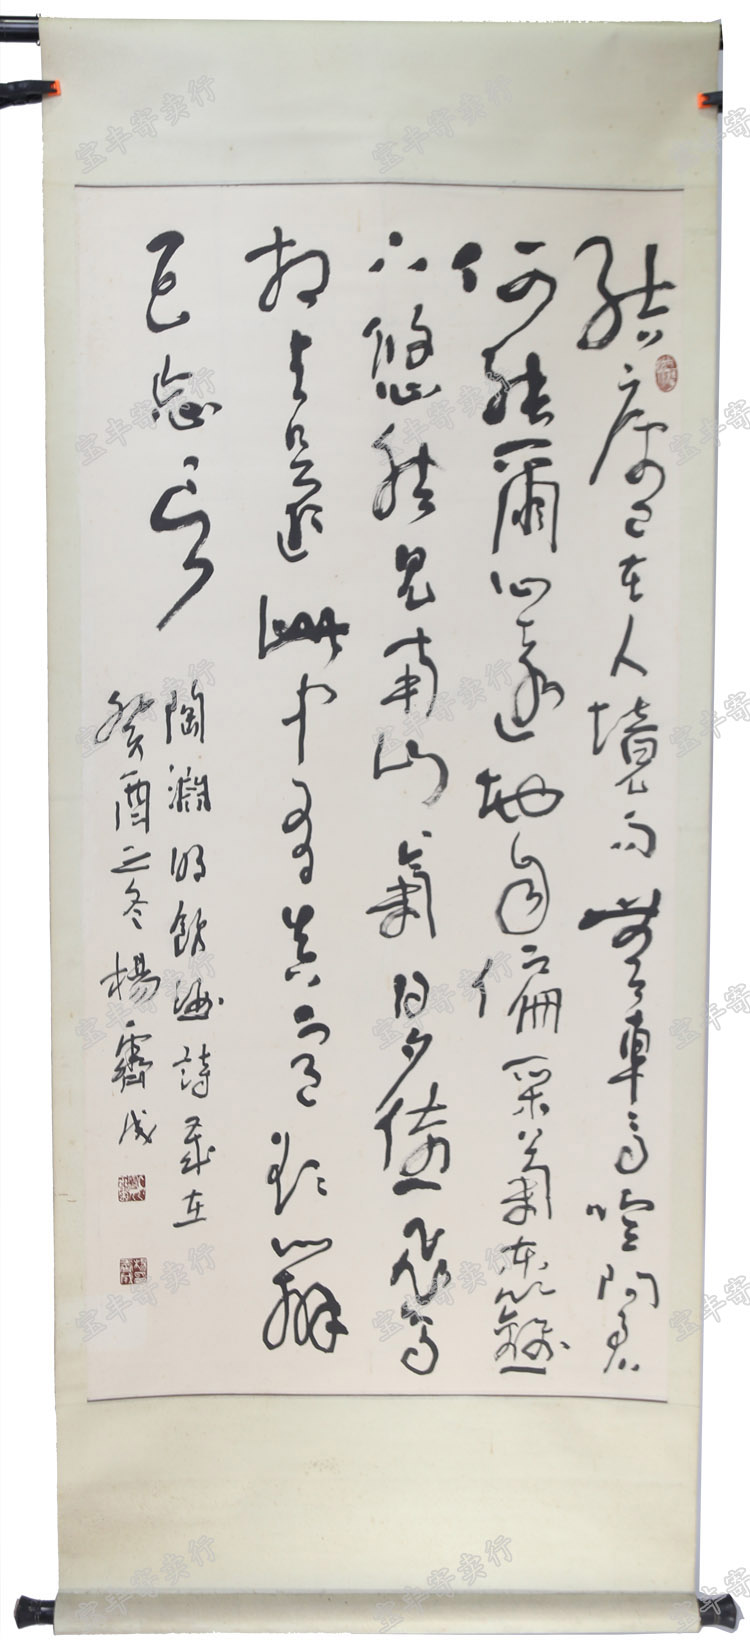 結廬在人境而無車馬喧問君
何能爾心遠地自偏采菊東籬
下悠然見南山氣日夕佳飛鳥
相與還此中有真意欲辨
已忘言
陶淵明飲酒詩歲在
癸酉之冬楊霽成
宝丰寄卖行